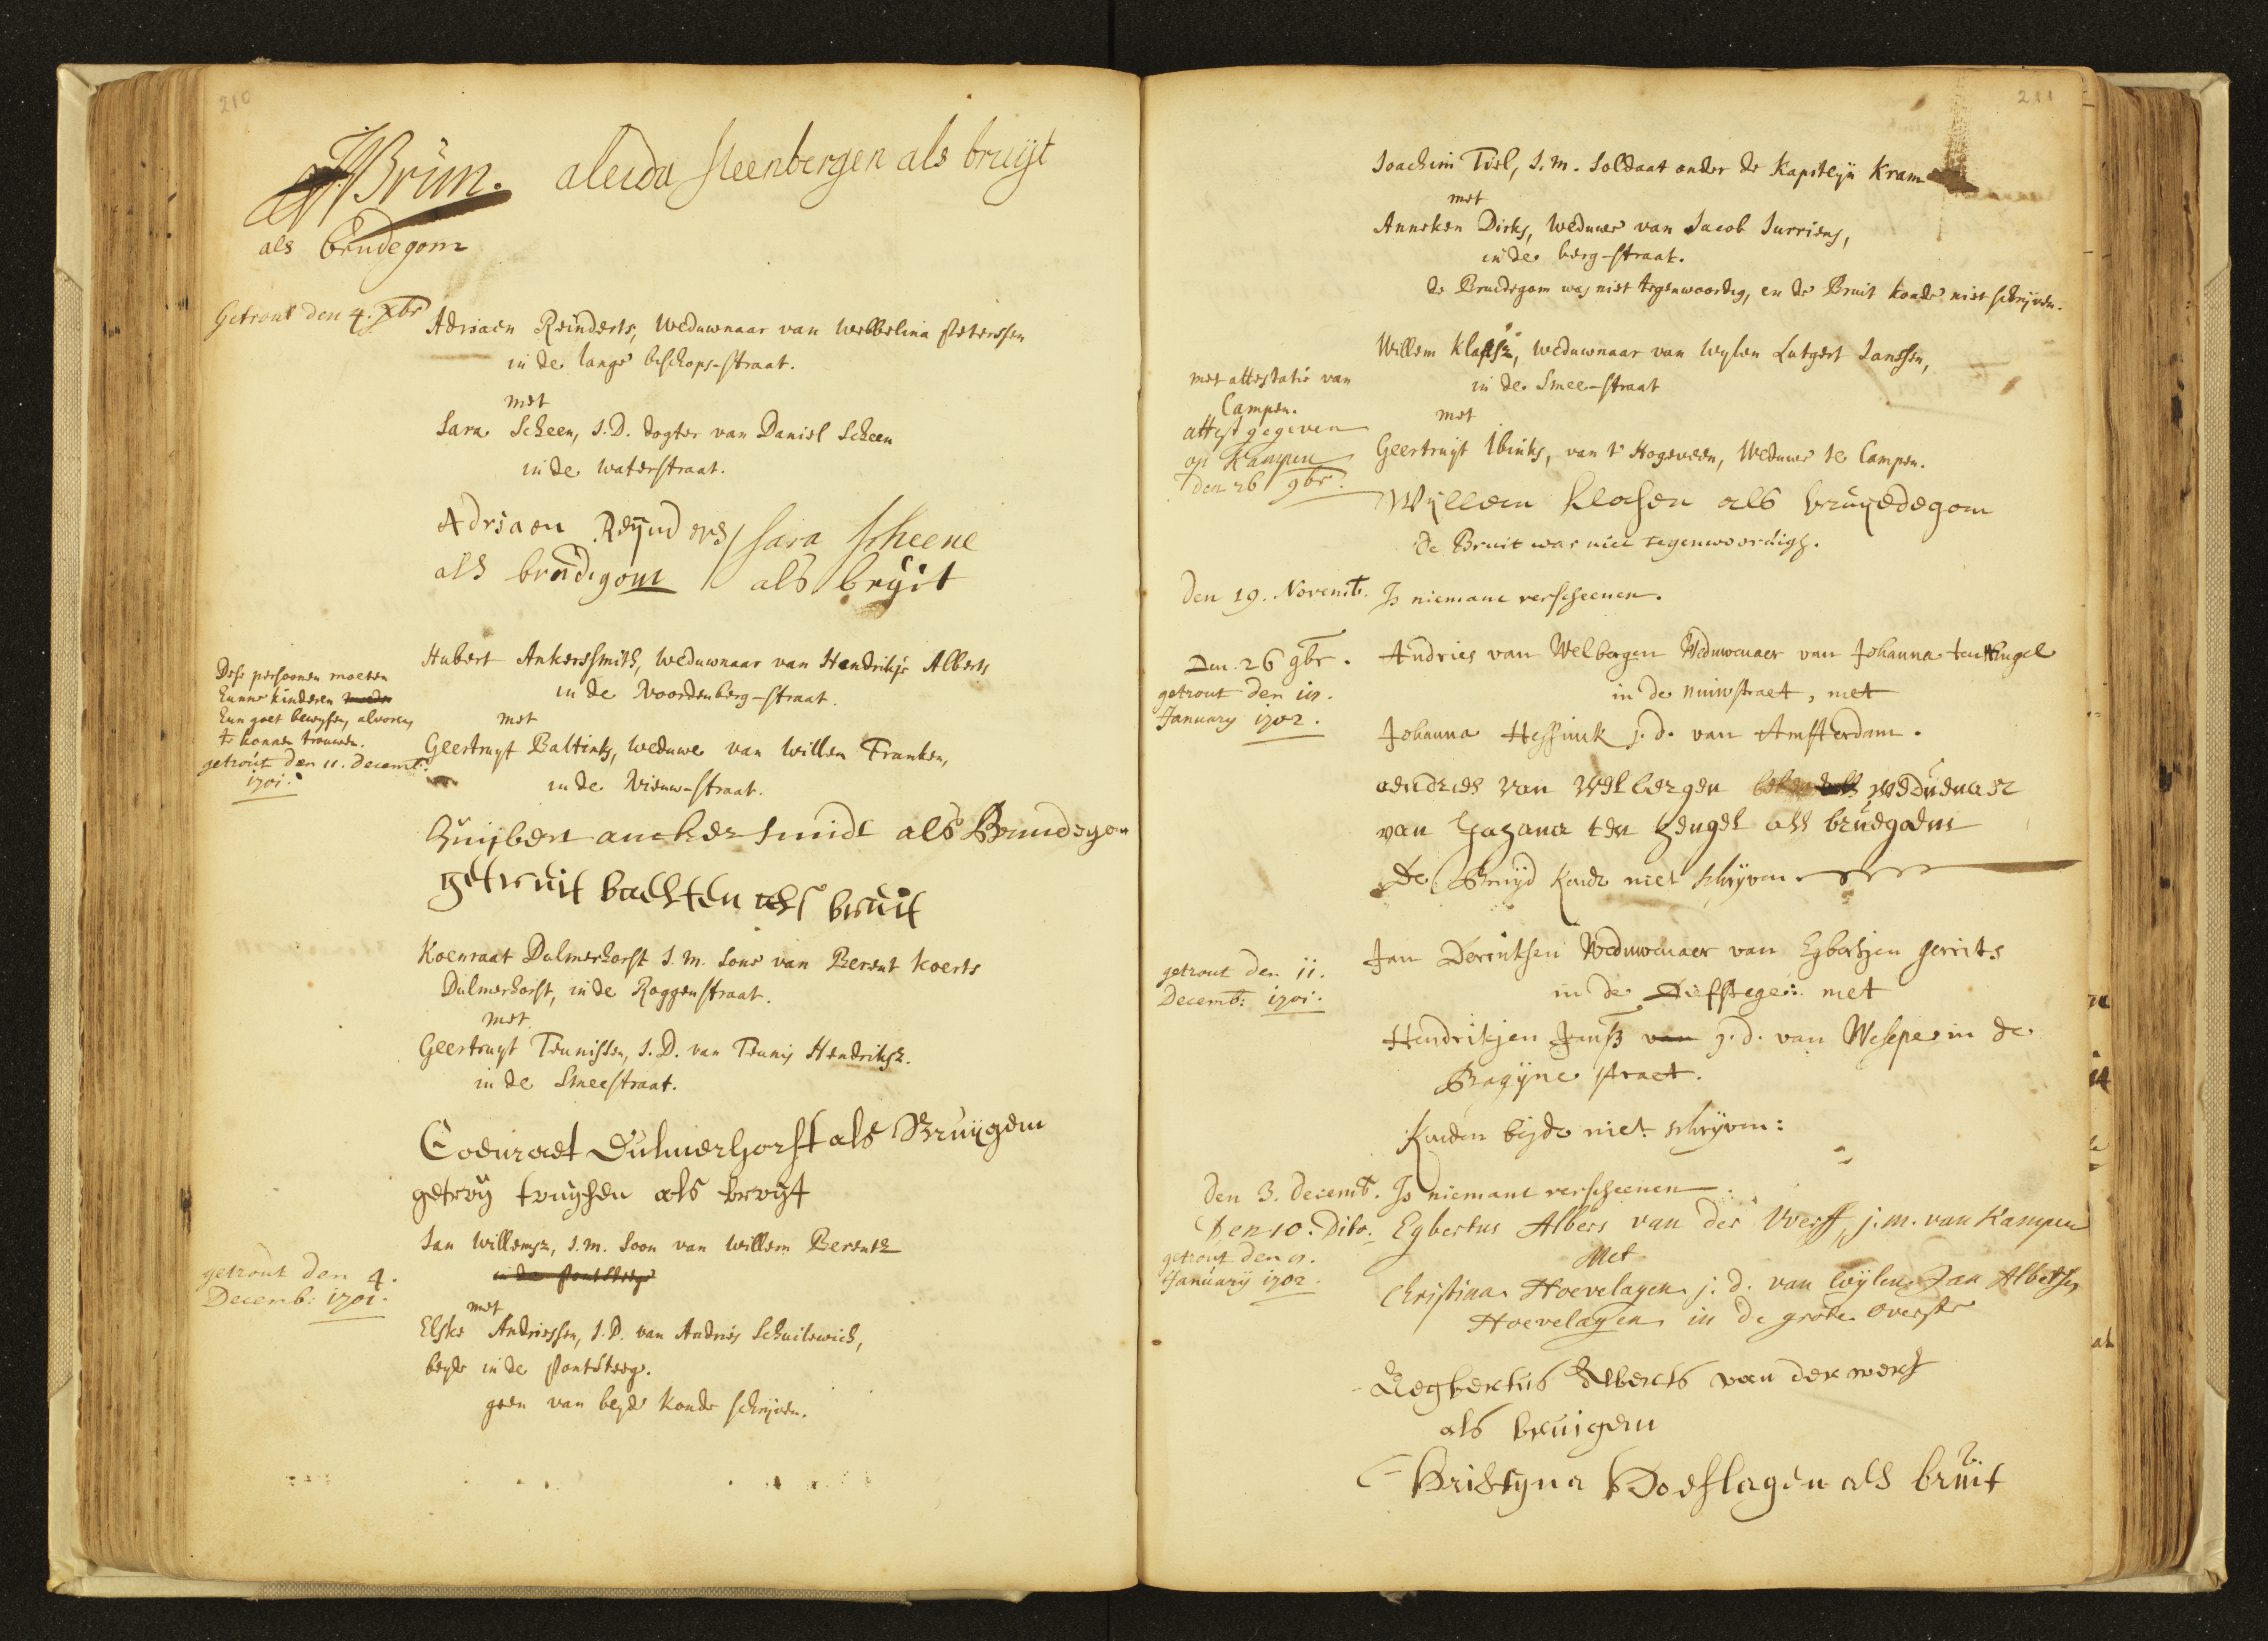 210
HBrun. aleida steenbergen als bruyt
als brudegom
Getrout den 4. Xbr
Adriaen Reinderts, Weduwnaar van Webbelina Peterssen
in de lange bischops-straat.
met
Sara Scheen, J.D. dogter van Daniel Scheen
in de waterstraat.
Adriaen Reynders / sara scheene
als brudigom als bryit
Dese persoonen moeten
hunne kinderen
hun goet bewysen, alvorens
te konnen trouwen.
getrout den 11. Decemb:
1701.
Hubert Ankerssmith, weduwnaar van Hendrikje Alberts
in de Noordenberg-straat.
met
Geertruyt Baltinks, weduwe van Willem Franken,
in de Nieuw-straat.
Huijbert anckersmidt als Bruudegom
getruit bachten als bruit
Koenraat Dulmerhorst J.M. Sone van Berent Koerts
Dulmerhorst, in de Roggenstraat.
met
Geertruyt Teunissen, J.D. van Teunis Hendriksz.
in de Smeestraat.
Coenraet Dulmerhorst als Bruijgem
getruy tonyssen als bruyt
getrout den 4.
Decemb: 1701.
Jan Willemsz, J.M. Soon van Willem Berentz
in de Pontsteege
met
Elske Andriessen, J.D. van Andries Schuilewich,
beyde in de Pontsteeg.
geen van beyde konde schryven.
211
Joachim Tiel, J.M. Soldaat onder de Kapiteyn Kram
met
Anneken Dirks, weduwe van Jacob Jurriens,
in de berg-straat.
de Bruidegom was niet tegenwoordig, en de Bruit konde niet schryven.
met attestatie van
Campen.
attest gegeven
op Kampen
den 26 9br.
Willem Klaessz, weduwnaar van wylen Lutgert Janssen,
in de Smee-straat
met
Geertruyt Ibinks, van 't Hogeveen, Weduwe te Campen.
Wyllem Klasen als bruyedegom
De Bruit was niet tegenwoordigh.
Den 19. Novemb. Is niemant verscheenen.
Den 26 9br.
getrout den 10.
January 1702.
Andries van Welbergen Weduwenaer van Johanna ten Hengel
in de nuiwstraet, met
Johanna Hessinck j.d. van Amsterdam.
aendries van welbergen weduenaer
van Johana ten hengel als bruegoem
De Bruyd konde niet schryven
getrout den 11.
Decemb: 1701.
Jan Derinksen Weduwenaer van Egbertjen Gerrits
in de Diefstege: met
Hendrikjen Janss van j.d. van Wesepe in de
Bagijne straet.
Konden beyde niet schryven:
Den 3. decemb. Is niemant verscheenen.
Den 10. Dito.
getrout den 9.
January 1702.
Egbertus Albers van der Werff, j.m. van Kampen
Met
Christina Hoevelagen j.d. van wijlen Jan Albertss
Hoevelagen in de grote overstr
Aegbertus Alberts van der werf
als bruigem
Christyna Hoeflagen als bruit